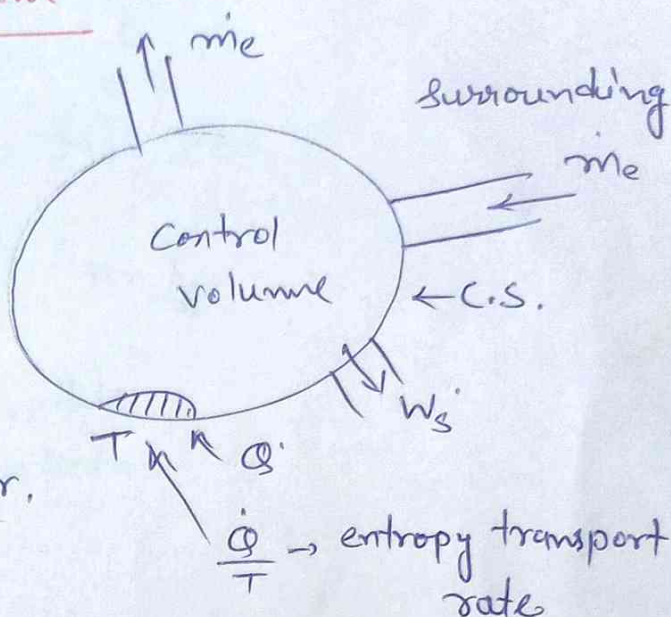 ṁe
Surrounding
ṁe
Control
volume
←C.S.
Ẇs
T Q̇
r.
Q̇/T → entropy transport
rate